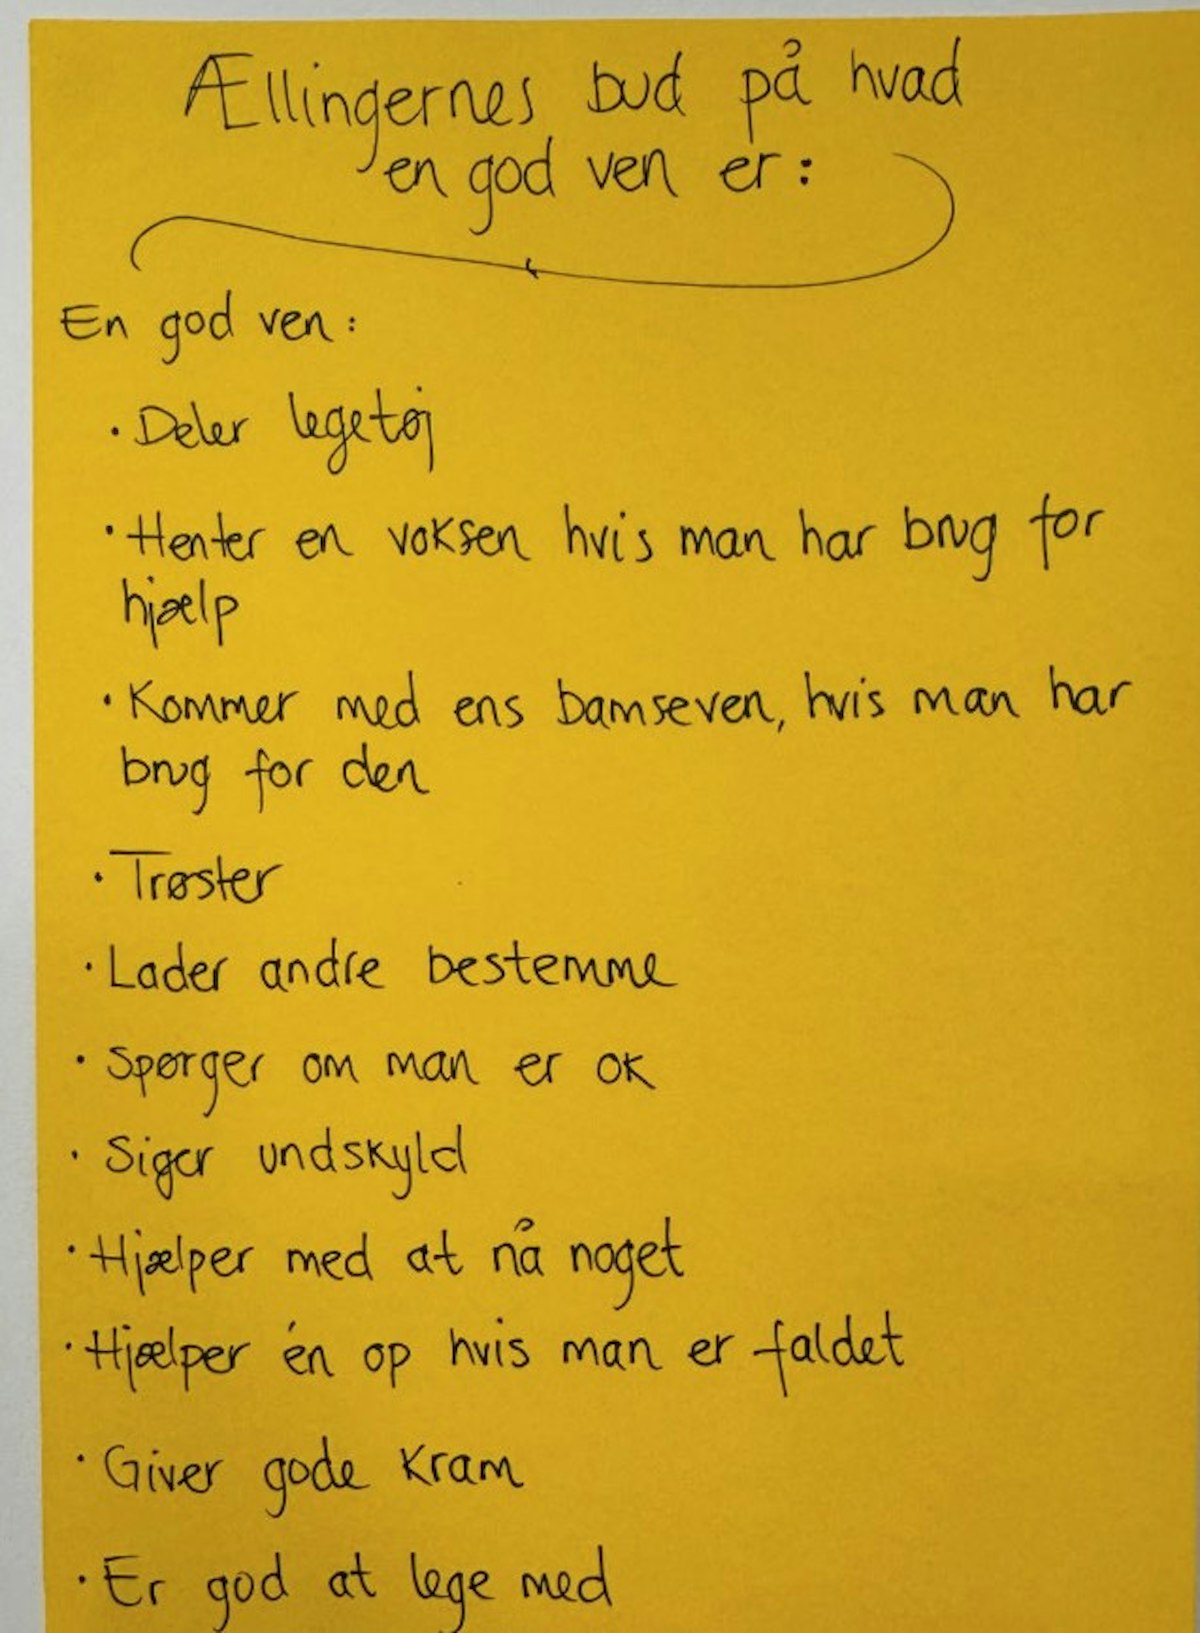 Ællingernes bud på hvad
en god ven er:
En god ven:
· Deler legetøj
· Henter en voksen hvis man har brug for
hjælp
· Kommer med ens bamseven, hvis man har
brug for den
· Trøster
· Lader andre bestemme
· Spørger om man er ok
· Siger undskyld
· Hjælper med at nå noget
· Hjælper én op hvis man er faldet
· Giver gode kram
· Er god at lege med